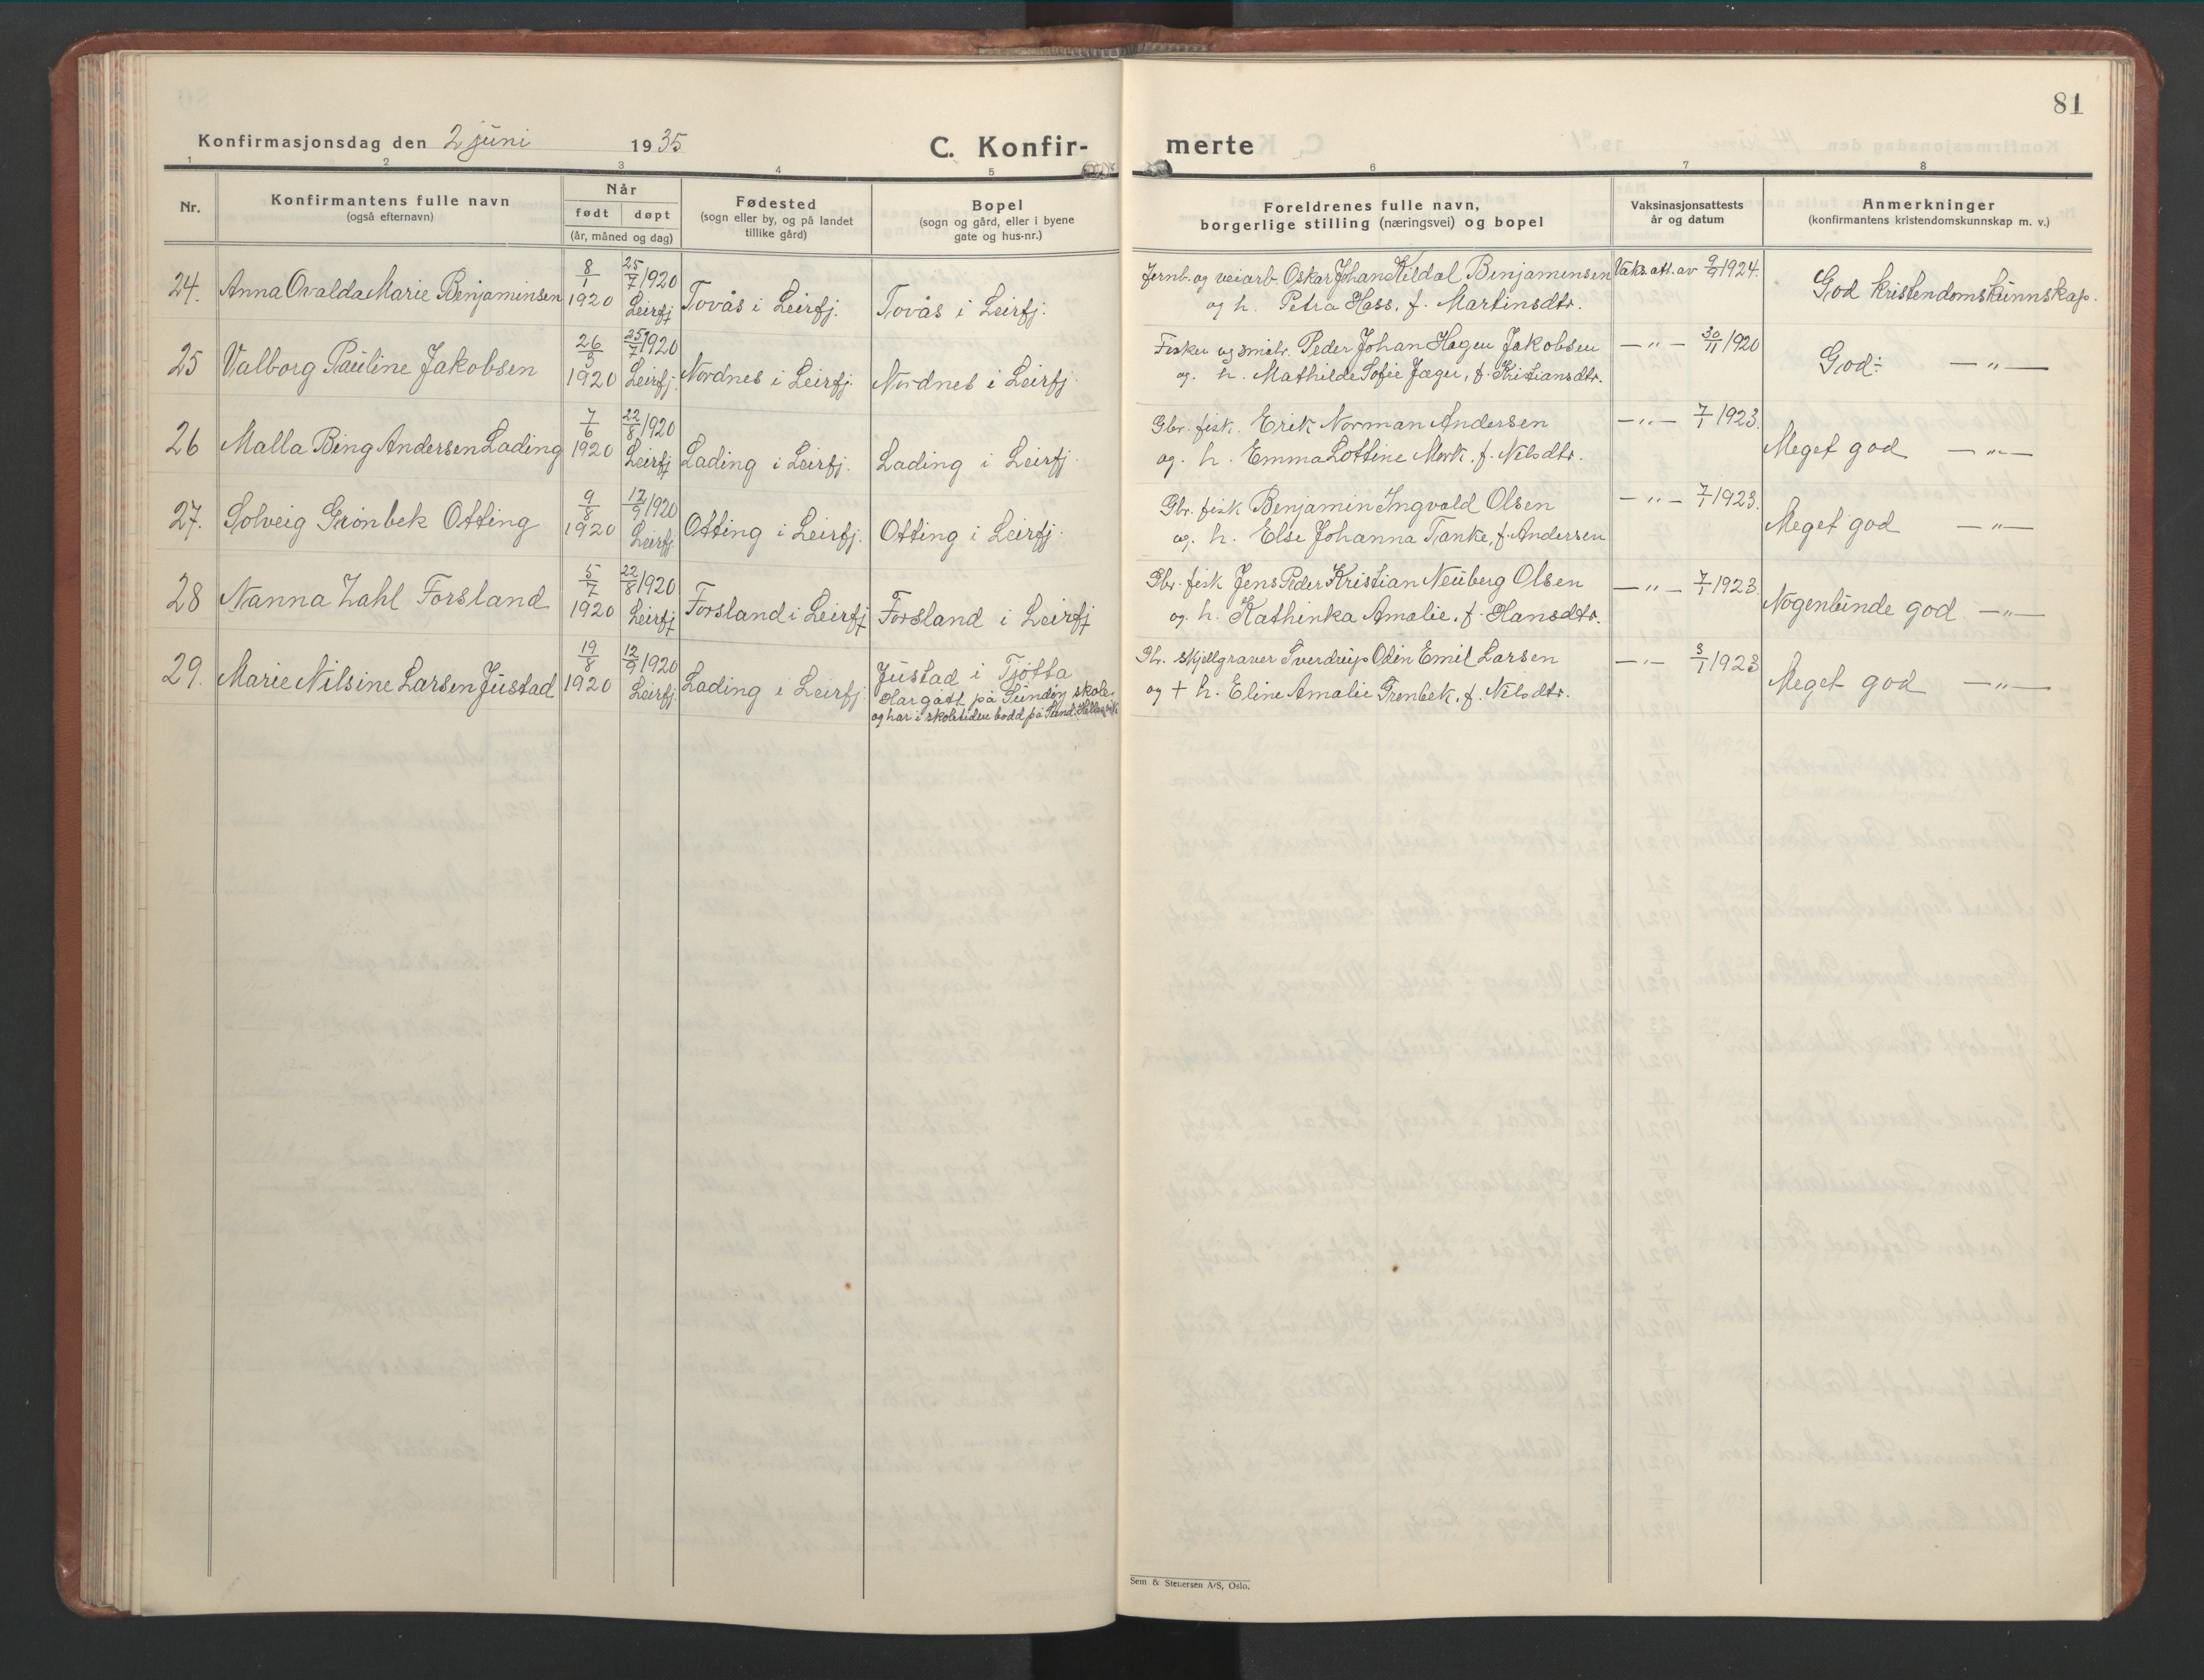 81
Konfirmasjonsdag den 2 juni 1935
C. Konfir-
merte
1 2 3 4 5 6 7 8
Nr.
Konfirmantens fulle navn
(også efternavn)
Når
født døpt
(år, måned og dag)
Fødested
(sogn eller by, og på landet
tillike gård)
Bopel
(sogn og gård, eller i byene
gate og hus-nr.)
Foreldrenes fulle navn,
borgerlige stilling (næringsvei) og bopel
Vaksinasjonsattests
år og datum
Anmerkninger
(konfirmantens kristendomskunnskap m. v.)
24. Anna Ovalda Marie Benjaminsen
8/1 1920
25/7 1920 Leirfj
Tovås i Leirfj.
Tovås i Leirfj.
Jernb. og veiarb. Oskar Johan Kildal Benjaminsen
og h. Petra Hass, f. Martinsdtr.
Vaks. att. av 9/9 1924.
God kristendomskunnskap.
25 Valborg Pauline Jakobsen
26/5 1920
25/7 1920 Leirfj.
Nordnes i Leirfj.
Nordnes i Leirfj.
Fisker og småbr. Peder Johan Hagen Jakobsen
og h. Mathilde Sofie Jæger, f. Kristiansdtr.
— " — 30/11 1920
God: — " —
26 Malla Bing Andersen Lading
7/6 1920
22/8 1920 Leirfj
Lading i Leirfj.
Lading i Leirfj.
Gbr. fisk. Erik Norman Andersen
og. h. Emma Lottine Mork, f. Nilsdtr.
— " — 7/7 1923.
Meget god — " —
27. Solveig Grønbek Otting
9/8 1920
12/9 1920 Leirfj.
Otting i Leirfj.
Otting i Leirfj.
Gbr. fisk Benjamin Ingvald Olsen
og. h. Else Johanna Tanke, f. Andersen
— " — 7/7 1923.
Meget god — " —
28 Nanna Zahl Forsland
5/7 1920
22/8 1920 Leirfj
Forsland i Leirfj
Forsland i Leirfj
Gbr. fisk Jens Peder Kristian Neuberg Olsen
og. h. Kathinka Amalie, f. Hansdtr.
— " — 7/7 1923.
Nogenlunde god — " —
29. Marie Nilsine Larsen Justad
19/8 1920
12/9 1920 Leirfj.
Lading i Leirfj.
Justad i Tjøtta
Har gått på Sundøy skole,
og har i skoletiden bodd på
Gbr. skjellgraver Sverdrup Odin Emil Larsen
og + h. Eline Amalie Grønbek, f. Nilsdtr.
— " — 3/1 1923
Meget god — " —
Sem & Stenersen A/S, Oslo.